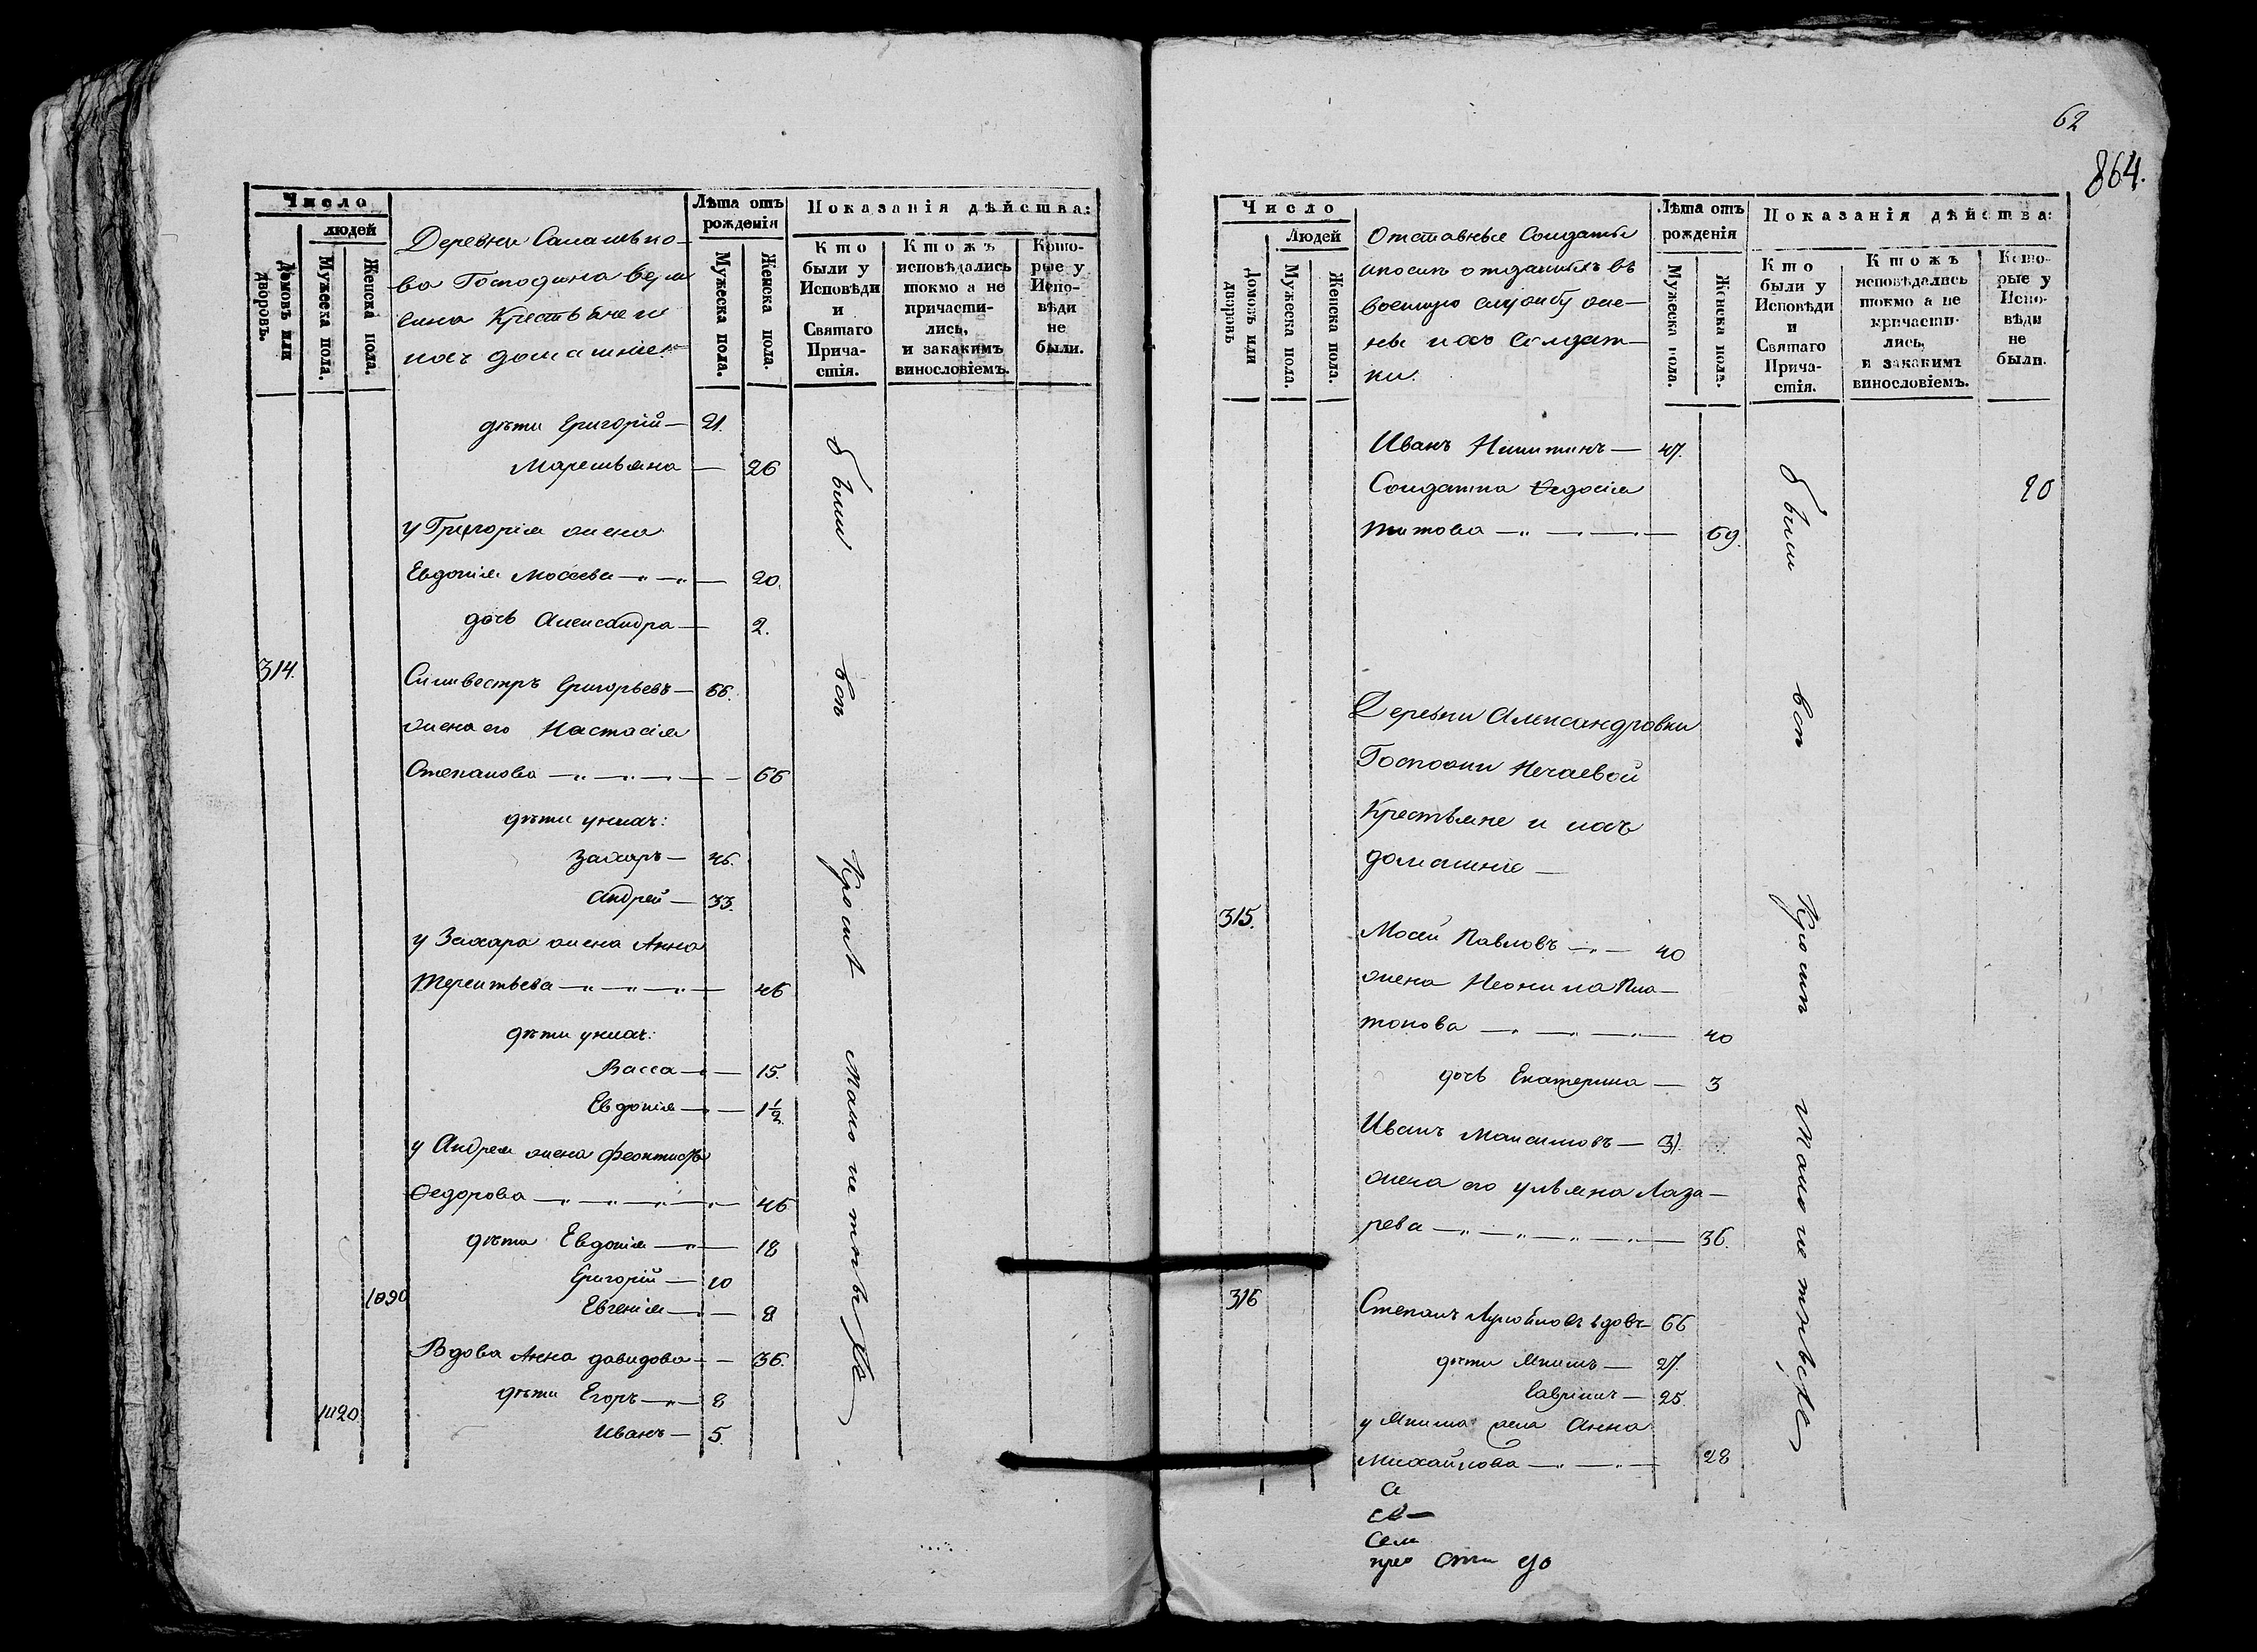 Число
людей
Домовъ или дворовъ.
Мужеска пола.
Женска пола.
Деревни
ва Господина
Крестьяне и
ихъ домашніе
Лѣта отъ рожденія
Мужеска пола.
Женска пола.
Показанія дѣйства:
Кто были у Исповѣди и Святаго Причастія.
Ктожъ исповѣдались токмо а не причастились, и закакимъ винословіемъ.
Которые у Исповѣди не были.
дѣти Григорій — 21.
26
у Григорія жена
Евдокія Мосеева — 20.
дочь Александра — 2.
314.
Силивестръ Григорьевъ — 66.
жена его Настасія
Степанова — 66
дѣти у нихъ:
Захаръ — 46.
Андрей — 33.
у Захара жена Анна
Терентьева — 46
дѣти у нихъ:
Васса — 15.
Евдокія — 1½
у Андрея жена
Федорова — 46
дѣти Евдокія — 18
Григорій — 10
1090
Евгенія — 8
Вдова Анна давидова — 36.
дѣти Егоръ — 8
1120
Иванъ — 5.
были вси Кромѣ
62
864.
Число
Людей
Домовъ или дворовъ
Мужеска пола.
Женска пола.
Отставные Солдаты
военную службу же-
ны ихъ Солдат-
ки.
Лѣта отъ рожденія
Мужеска пола.
Женска пола.
Показанія дѣйства:
Кто были у Исповѣди и Святаго Причастія.
Ктожъ исповѣдались токмо а не причастились, и закакимъ винословіемъ.
Которые у Исповѣди не были.
Иванъ Никитинъ — 47.
Солдатка Ѳедосія
Титова — 69.
Деревни Александровки
Госпожи Нечаевой
Крестьяне и ихъ
домашніе —
315.
Мосей Павловъ — 40
жена Неонила Пла-
тонова — 40
дочь Екатерина — 3
Иванъ Максимовъ — 31.
жена его Ульяна Лаза-
рева — 36.
316
Степанъ вдовъ — 66
дѣти Якимъ — 27.
Гаврилъ — 25.
у Якима жена Анна
Михайлова — 28
были вси Кромѣ